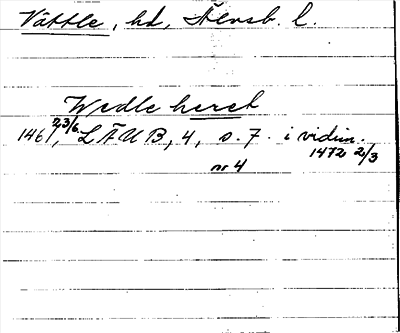 Vättle, hd, Älvsb. l.
Wedle heret
1461 23/6, LÄUB, 4, s. 7. i vidim.
1472 2/3
nr 4